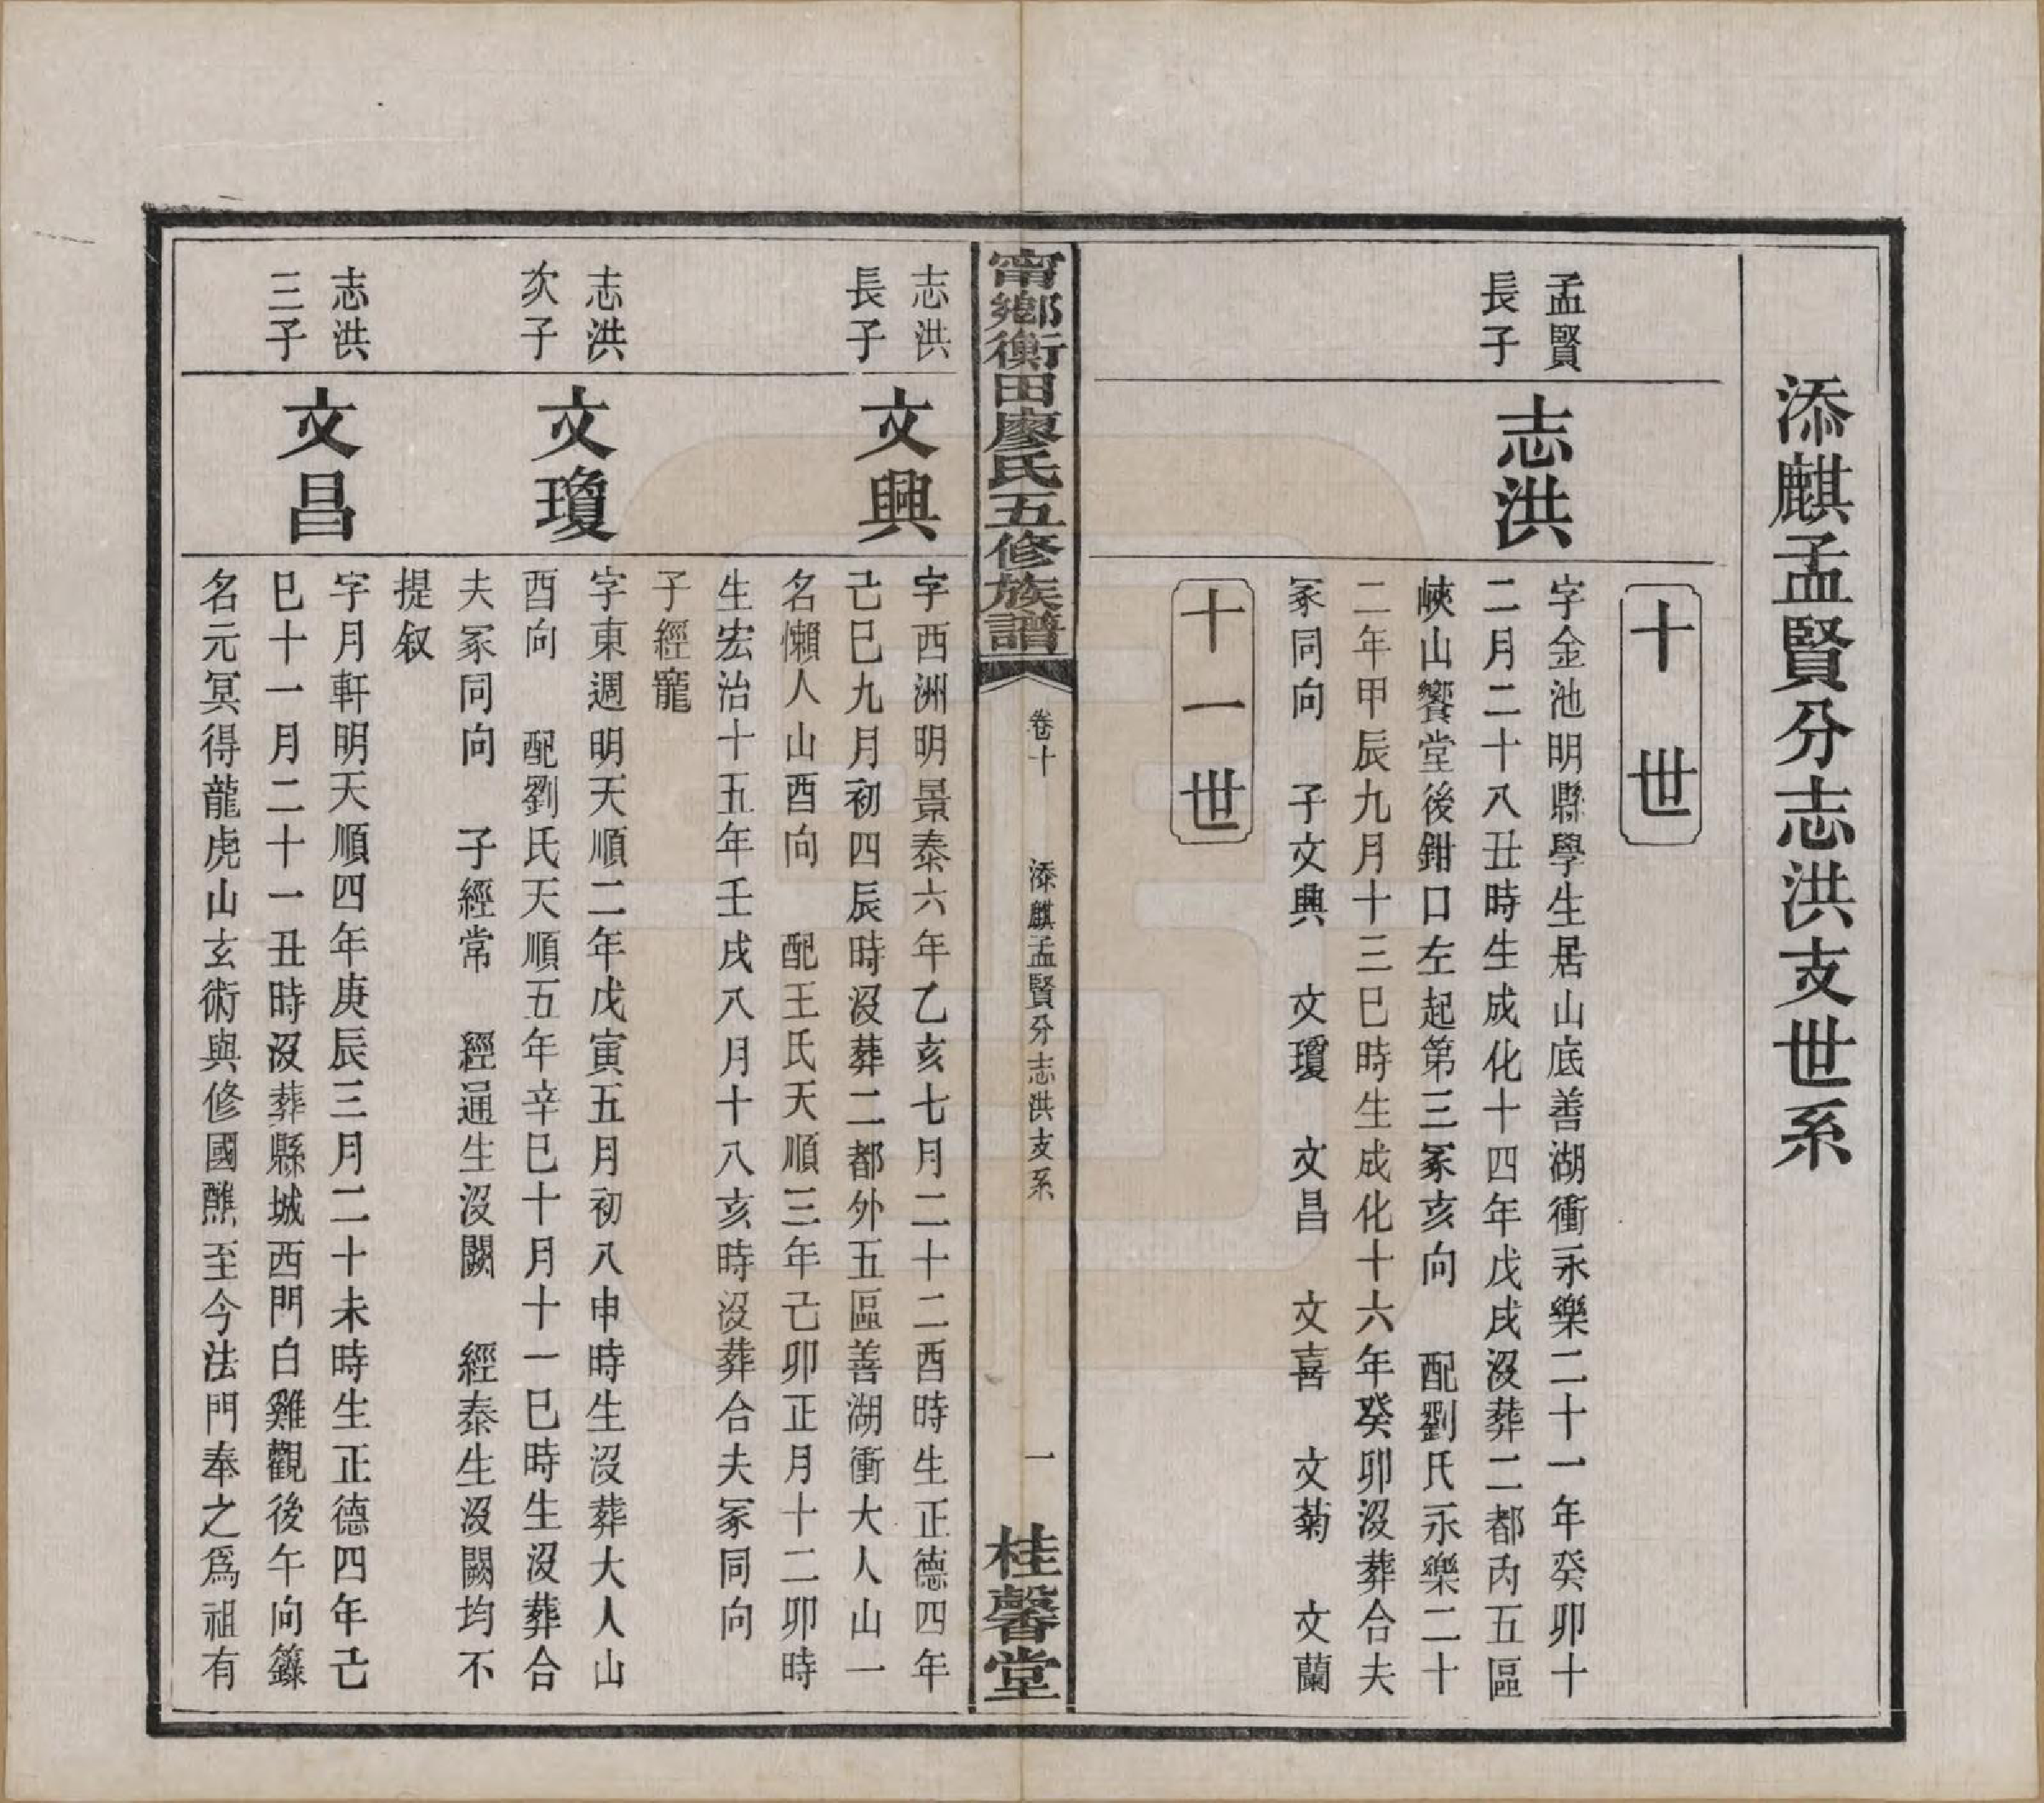 添麒孟賢分志洪支世系
十世
孟賢
長子
志洪
字金池明縣學生居山底善湖衝永樂二十一年癸卯十
二月二十八丑時生成化十四年戊戌沒葬二都丙五區
峽山饗堂後鉗口左起第三冢亥向　配劉氏永樂二十
二年甲辰九月十三巳時生成化十六年癸卯沒葬合夫
冢同向　子文興　文瓊　文昌　文喜　文菊　文蘭
十一世
甯鄉衡田廖氏五修族譜
卷十
添麒孟賢分志洪支系
一
桂馨堂
志洪
長子
文興
字西洲明景泰六年乙亥七月二十二酉時生正德四年
己巳九月初四辰時沒葬二都外五區善湖衝大人山一
名懶人山酉向　配王氏天順三年己卯正月十二卯時
生宏治十五年壬戌八月十八亥時沒葬合夫冢同向
子經寵
志洪
次子
文瓊
字東週明天順二年戊寅五月初八申時生沒葬大人山
酉向　配劉氏天順五年辛巳十月十一巳時生沒葬合
夫冢同向　子經常　經通生沒闕　經泰生沒闕均不
提敘
志洪
三子
文昌
字月軒明天順四年庚辰三月二十未時生正德四年己
巳十一月二十一丑時沒葬縣城西門白雞觀後午向籙
名元冥得龍虎山玄術與修國醮至今法門奉之爲祖有